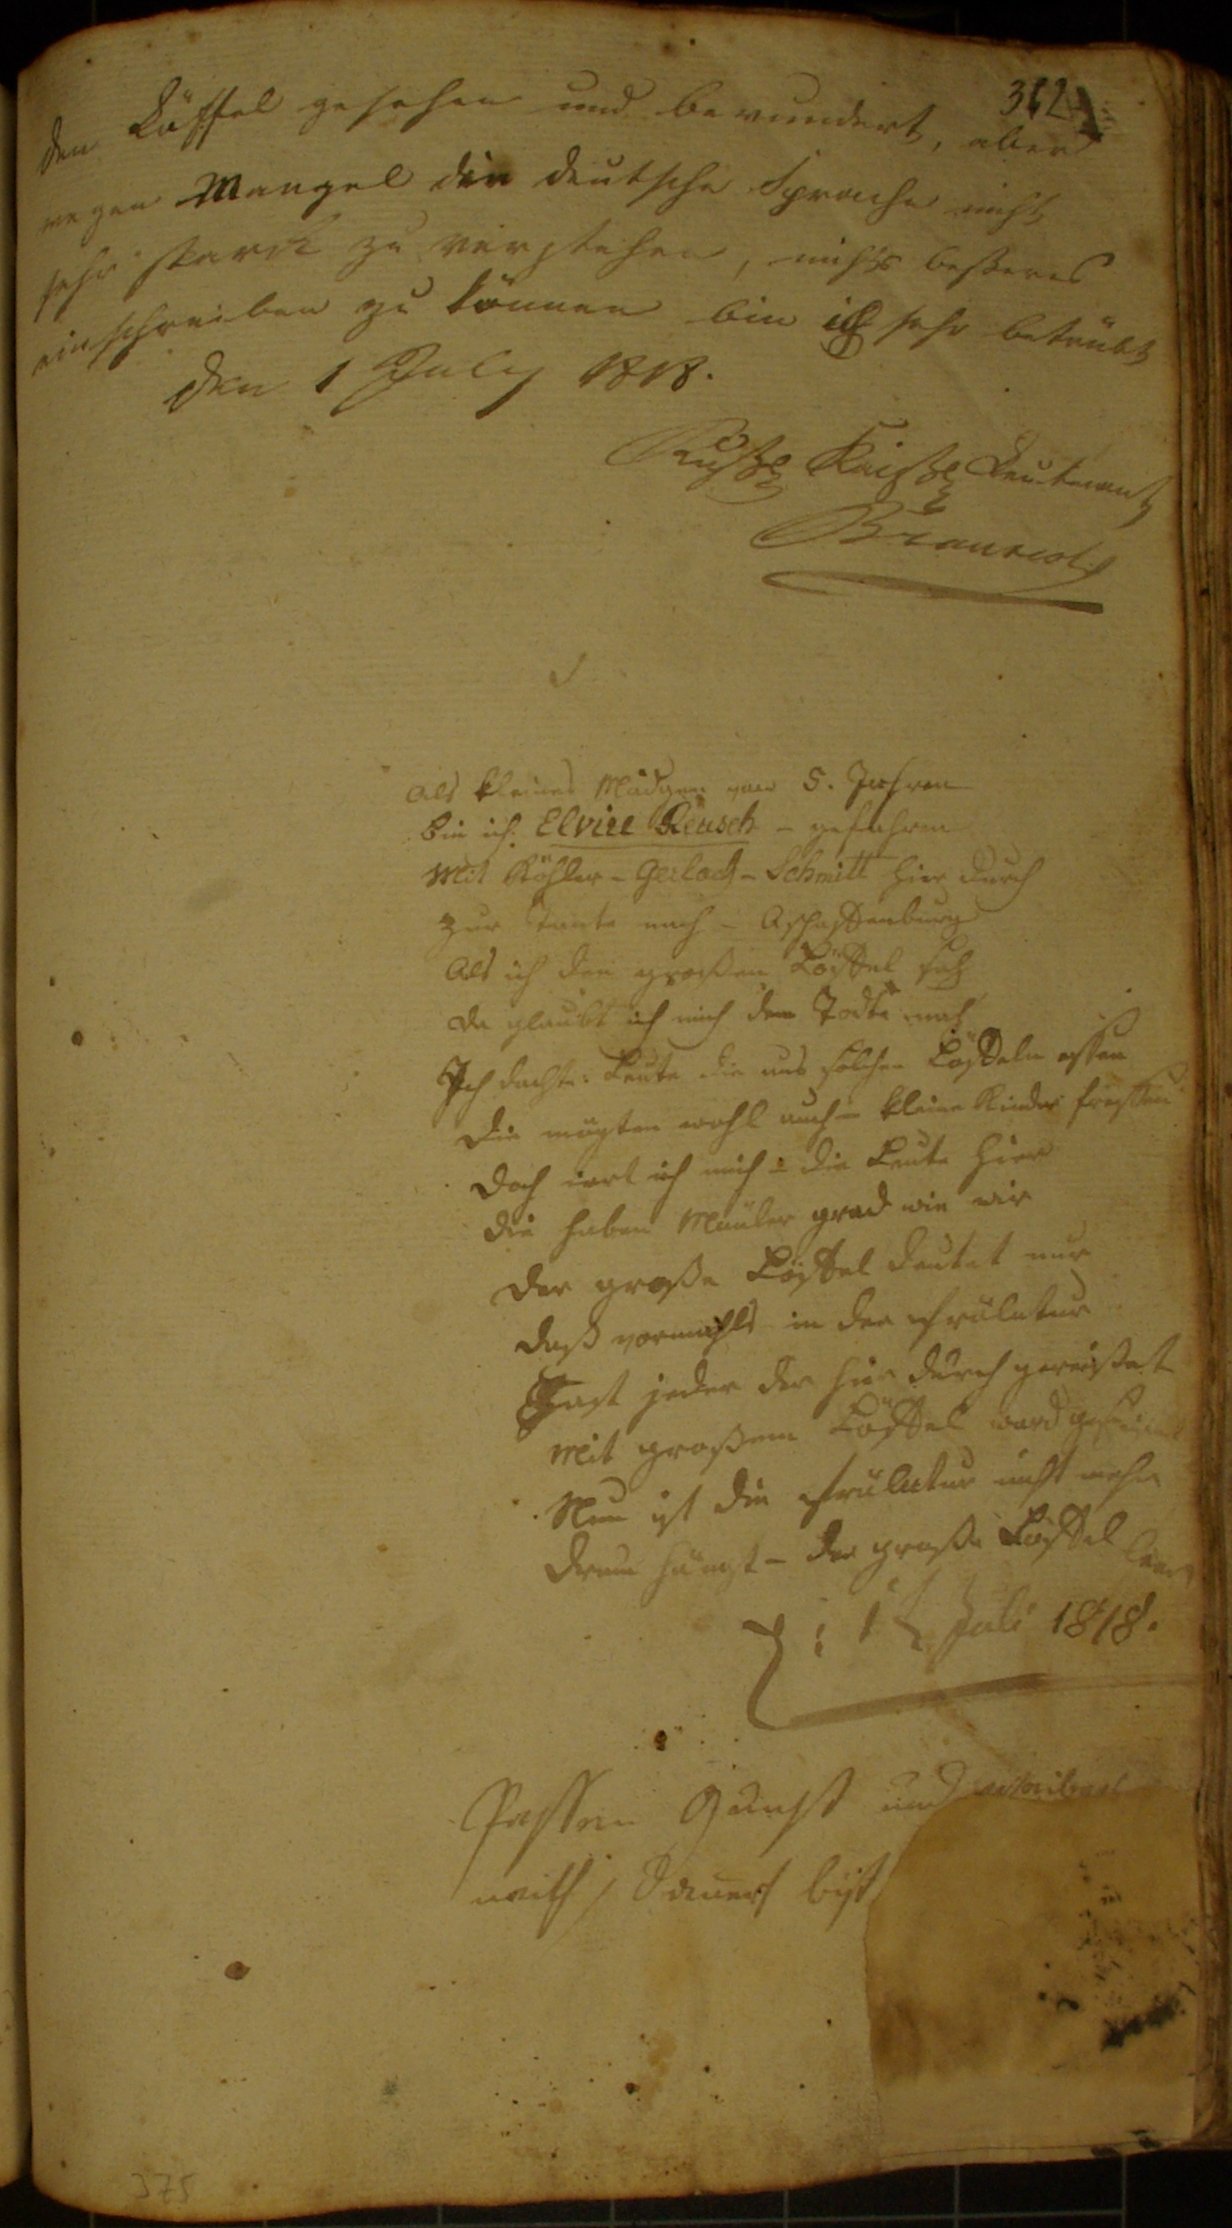 362
den Löffel gesehen und bewundert, aber
wegen Mangel die deutsche Sprache nicht
sehr starck zu verstehen, nichts beßeres
einschreiben zu können bin ich sehr betrübt
den 1 July 1818.
Rußl Kaißl Leutnant
Als kleines Mädgen von 5. Jahren
bin ich Elvire Reusch - gefahren
Mit Köhler - Gerlach - Schmitt hier durch
zur Tante nach - Aschaffenburg
Als ich den großen Löffel sah
da glaubt ich mich dem Todte nah
Ich dachte: Leute die aus solchen Löffeln essen
die mögten wohl auch - kleine Kinder fressen
Doch irrt ich mich - die Leute hier
die haben Mäuler grad wie wir
der große Löffel deutet nur
daß vormahls in der Prälatur
Fast jeder der hier durch gereißet
Mit großem Löffel ward gespeiset
Nun ist die Prälatur nicht mehr
Drum hängt - der große Löffel leer
1 Juli 1818.
Gunst und
375